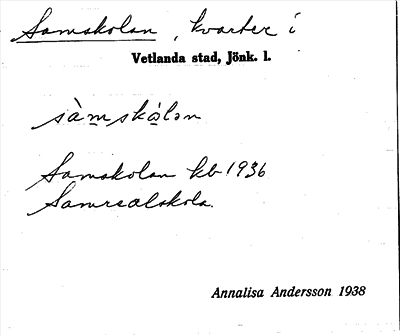 Samskolan, kvarter i
Vetlanda stad, Jönk. l.
sàmskó̀lən
Samskolan kb 1936
Samrealskola.
Annalisa Andersson 1938